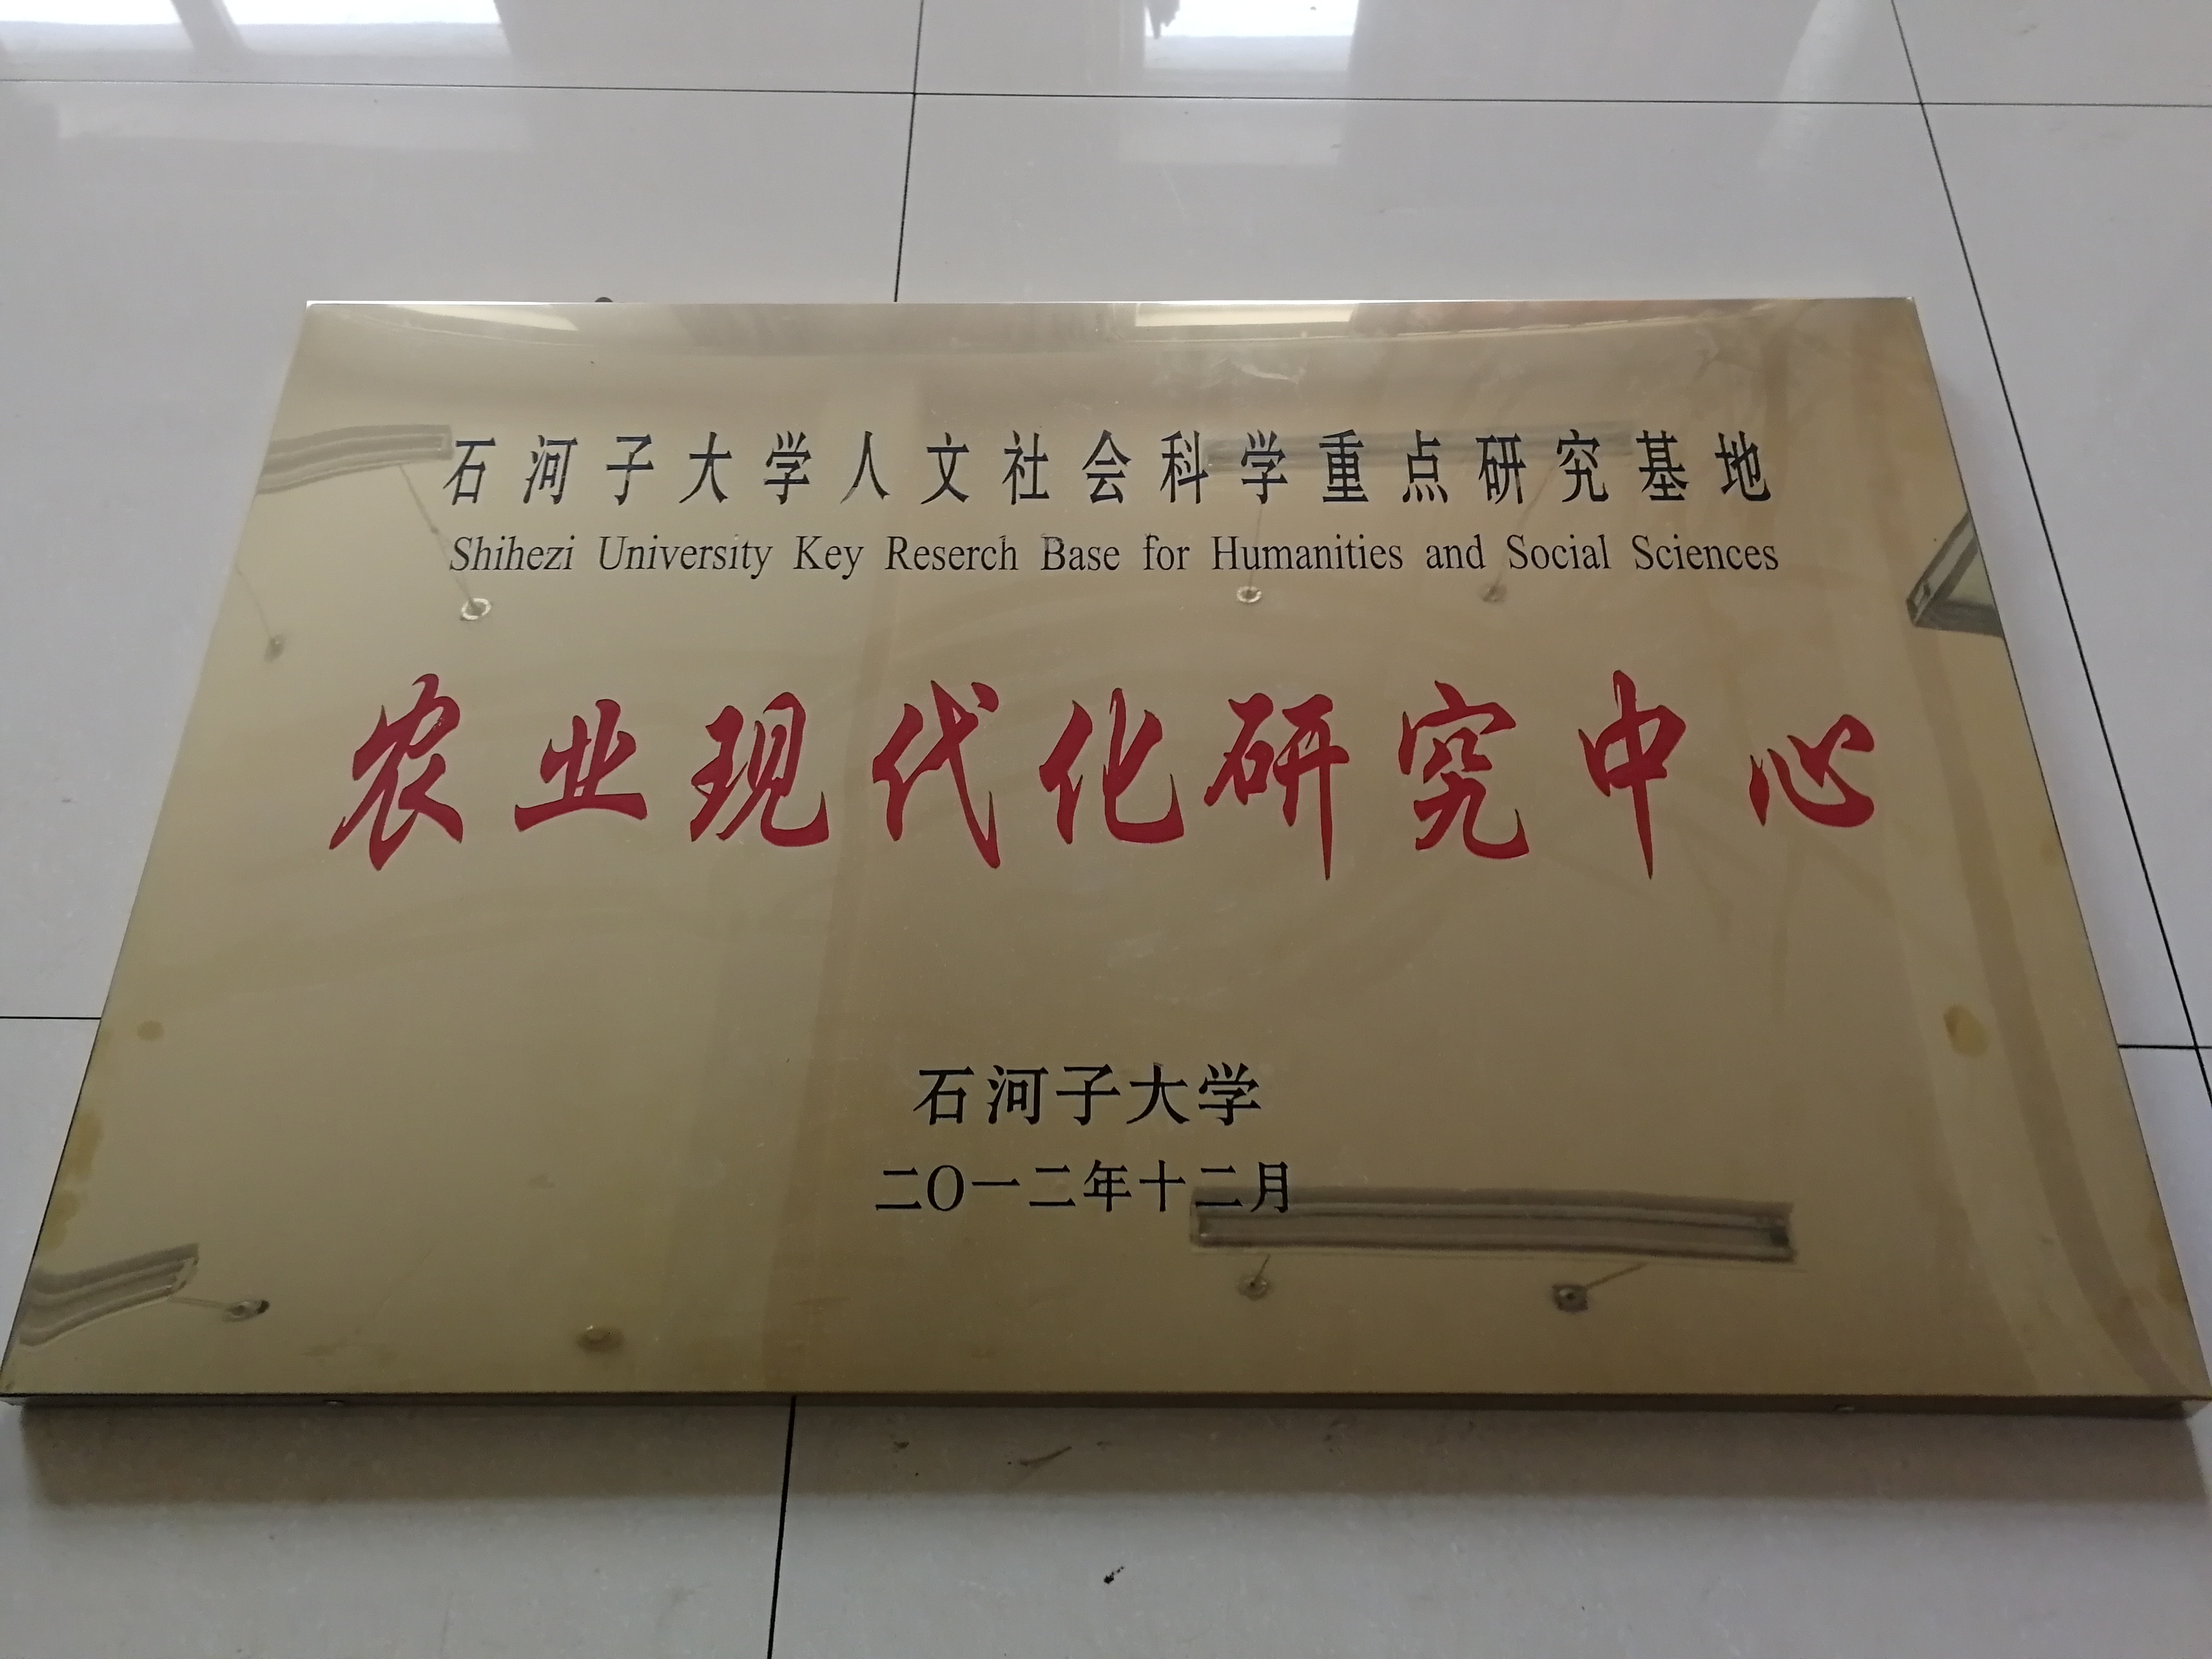 石河子大学人文社会科学重点研究基地
Shihezi University Key Reserch Base for Humanities and Social Sciences
农业现代化研究中心
石河子大学
二〇一二年十二月